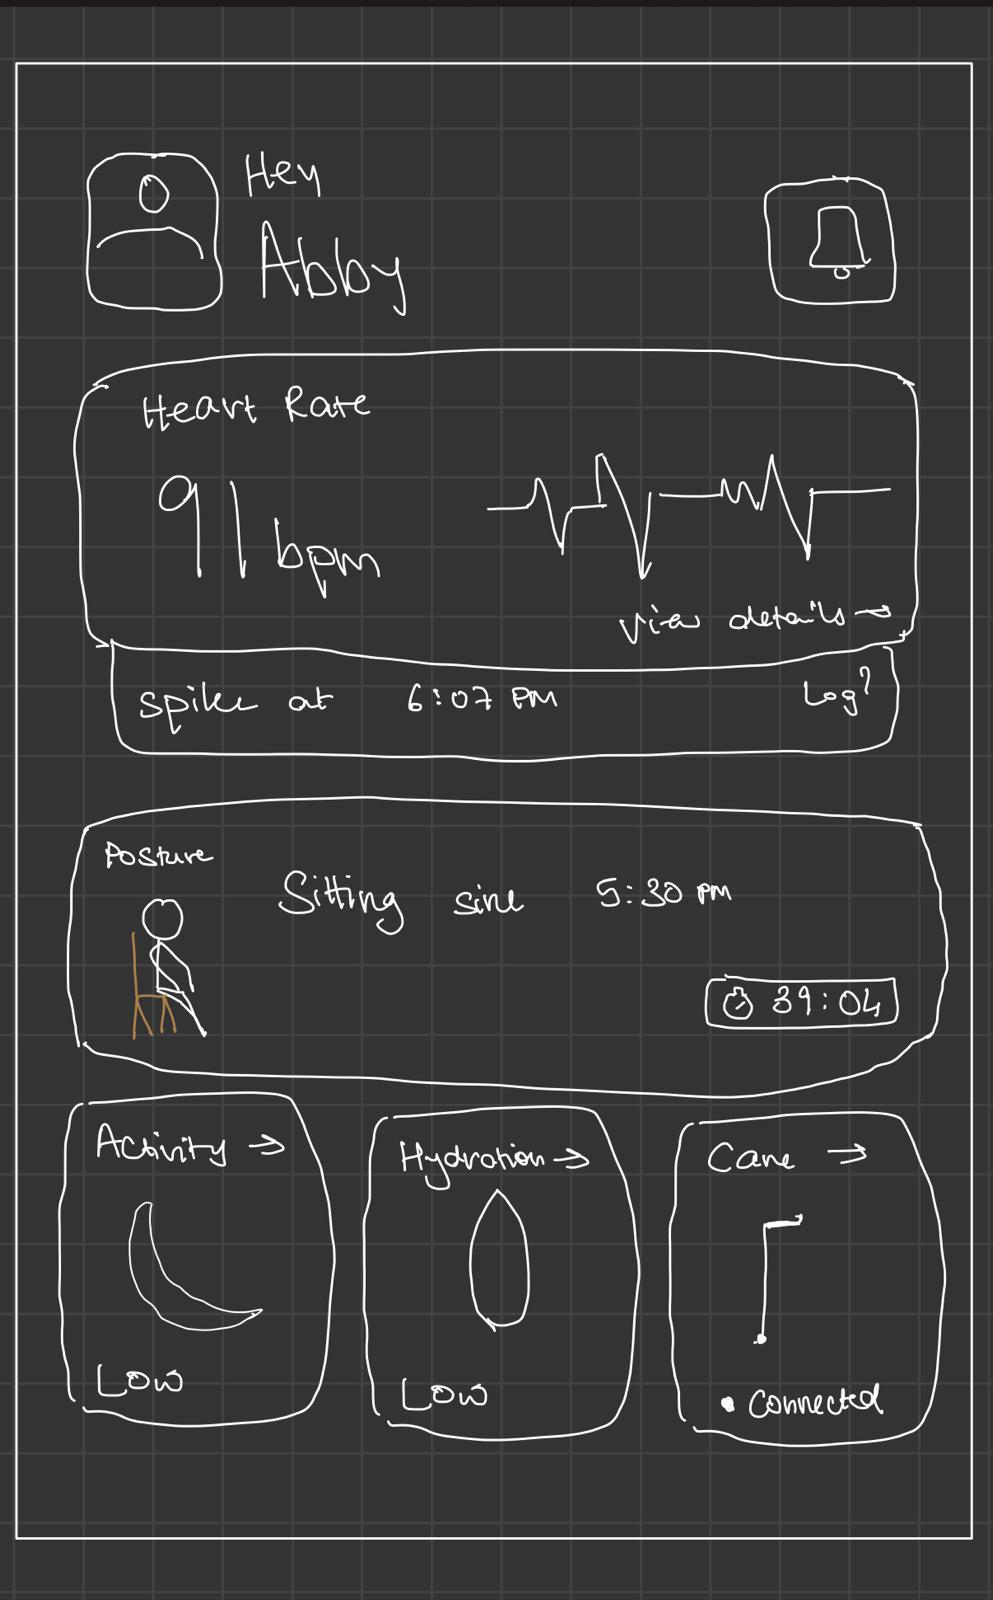 Hey
Abby
Heart Rate
91 bpm
View details →
spike at 6:07 PM Log?
Posture
Sitting sine 5:30 PM
39:04
Activity →
Low
Hydration →
Low
Cane →
• Connected